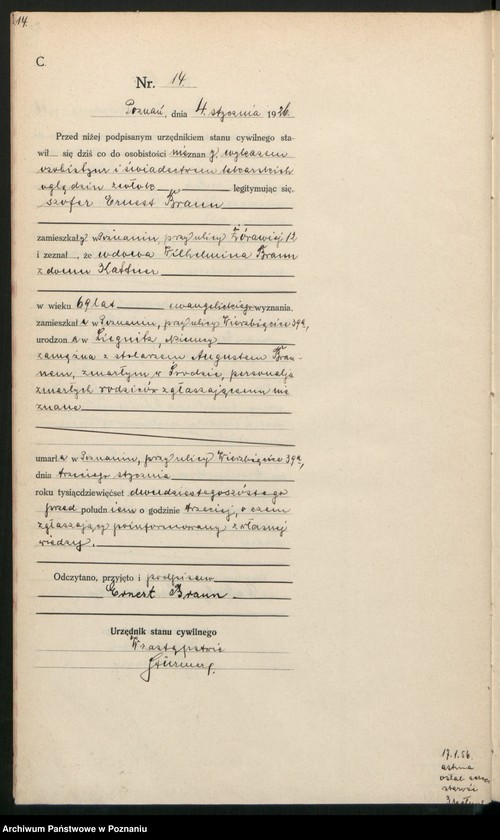 14.
C.
Nr. 14.
Poznań, dnia 4 stycznia 1926.
Przed niżej podpisanym urzędnikiem stanu cywilnego sta-
wił się dziś co do osobistości nieznany,
osobistym i świadectwem lekarskich
oględzin zwłok legitymując się.
szofer Ernest Braun
zamieszkały w Poznaniu, przy ulicy Żórawiej 12
i zeznał, że wdowa Wilhelmina Braun
z domu Kattner
w wieku 69 lat ewangelickiego wyznania.
zamieszkała w Poznaniu, przy ulicy Wierzbięcice 39a,
urodzona w Liegnitz, Niemcy
zamężna z stolarzem Augustem Brau-
nem, zmarłym w Środzie, personalja
zmarłych rodziców zgłaszającemu nie
znane
umarła w Poznaniu, przy ulicy Wierzbięcice 39a,
dnia trzeciego stycznia
roku tysiącdziewięćset dwudziestegoszóstego
przed południem o godzinie trzeciej, o czem
zgłaszający poinformowany z własnej
wiedzy.
Odczytano, przyjęto i podpisano
Ernest Braun
Urzędnik stanu cywilnego
W zastępstwie
17.1.56.
astma
starość
Archiwum Państwowe w Poznaniu